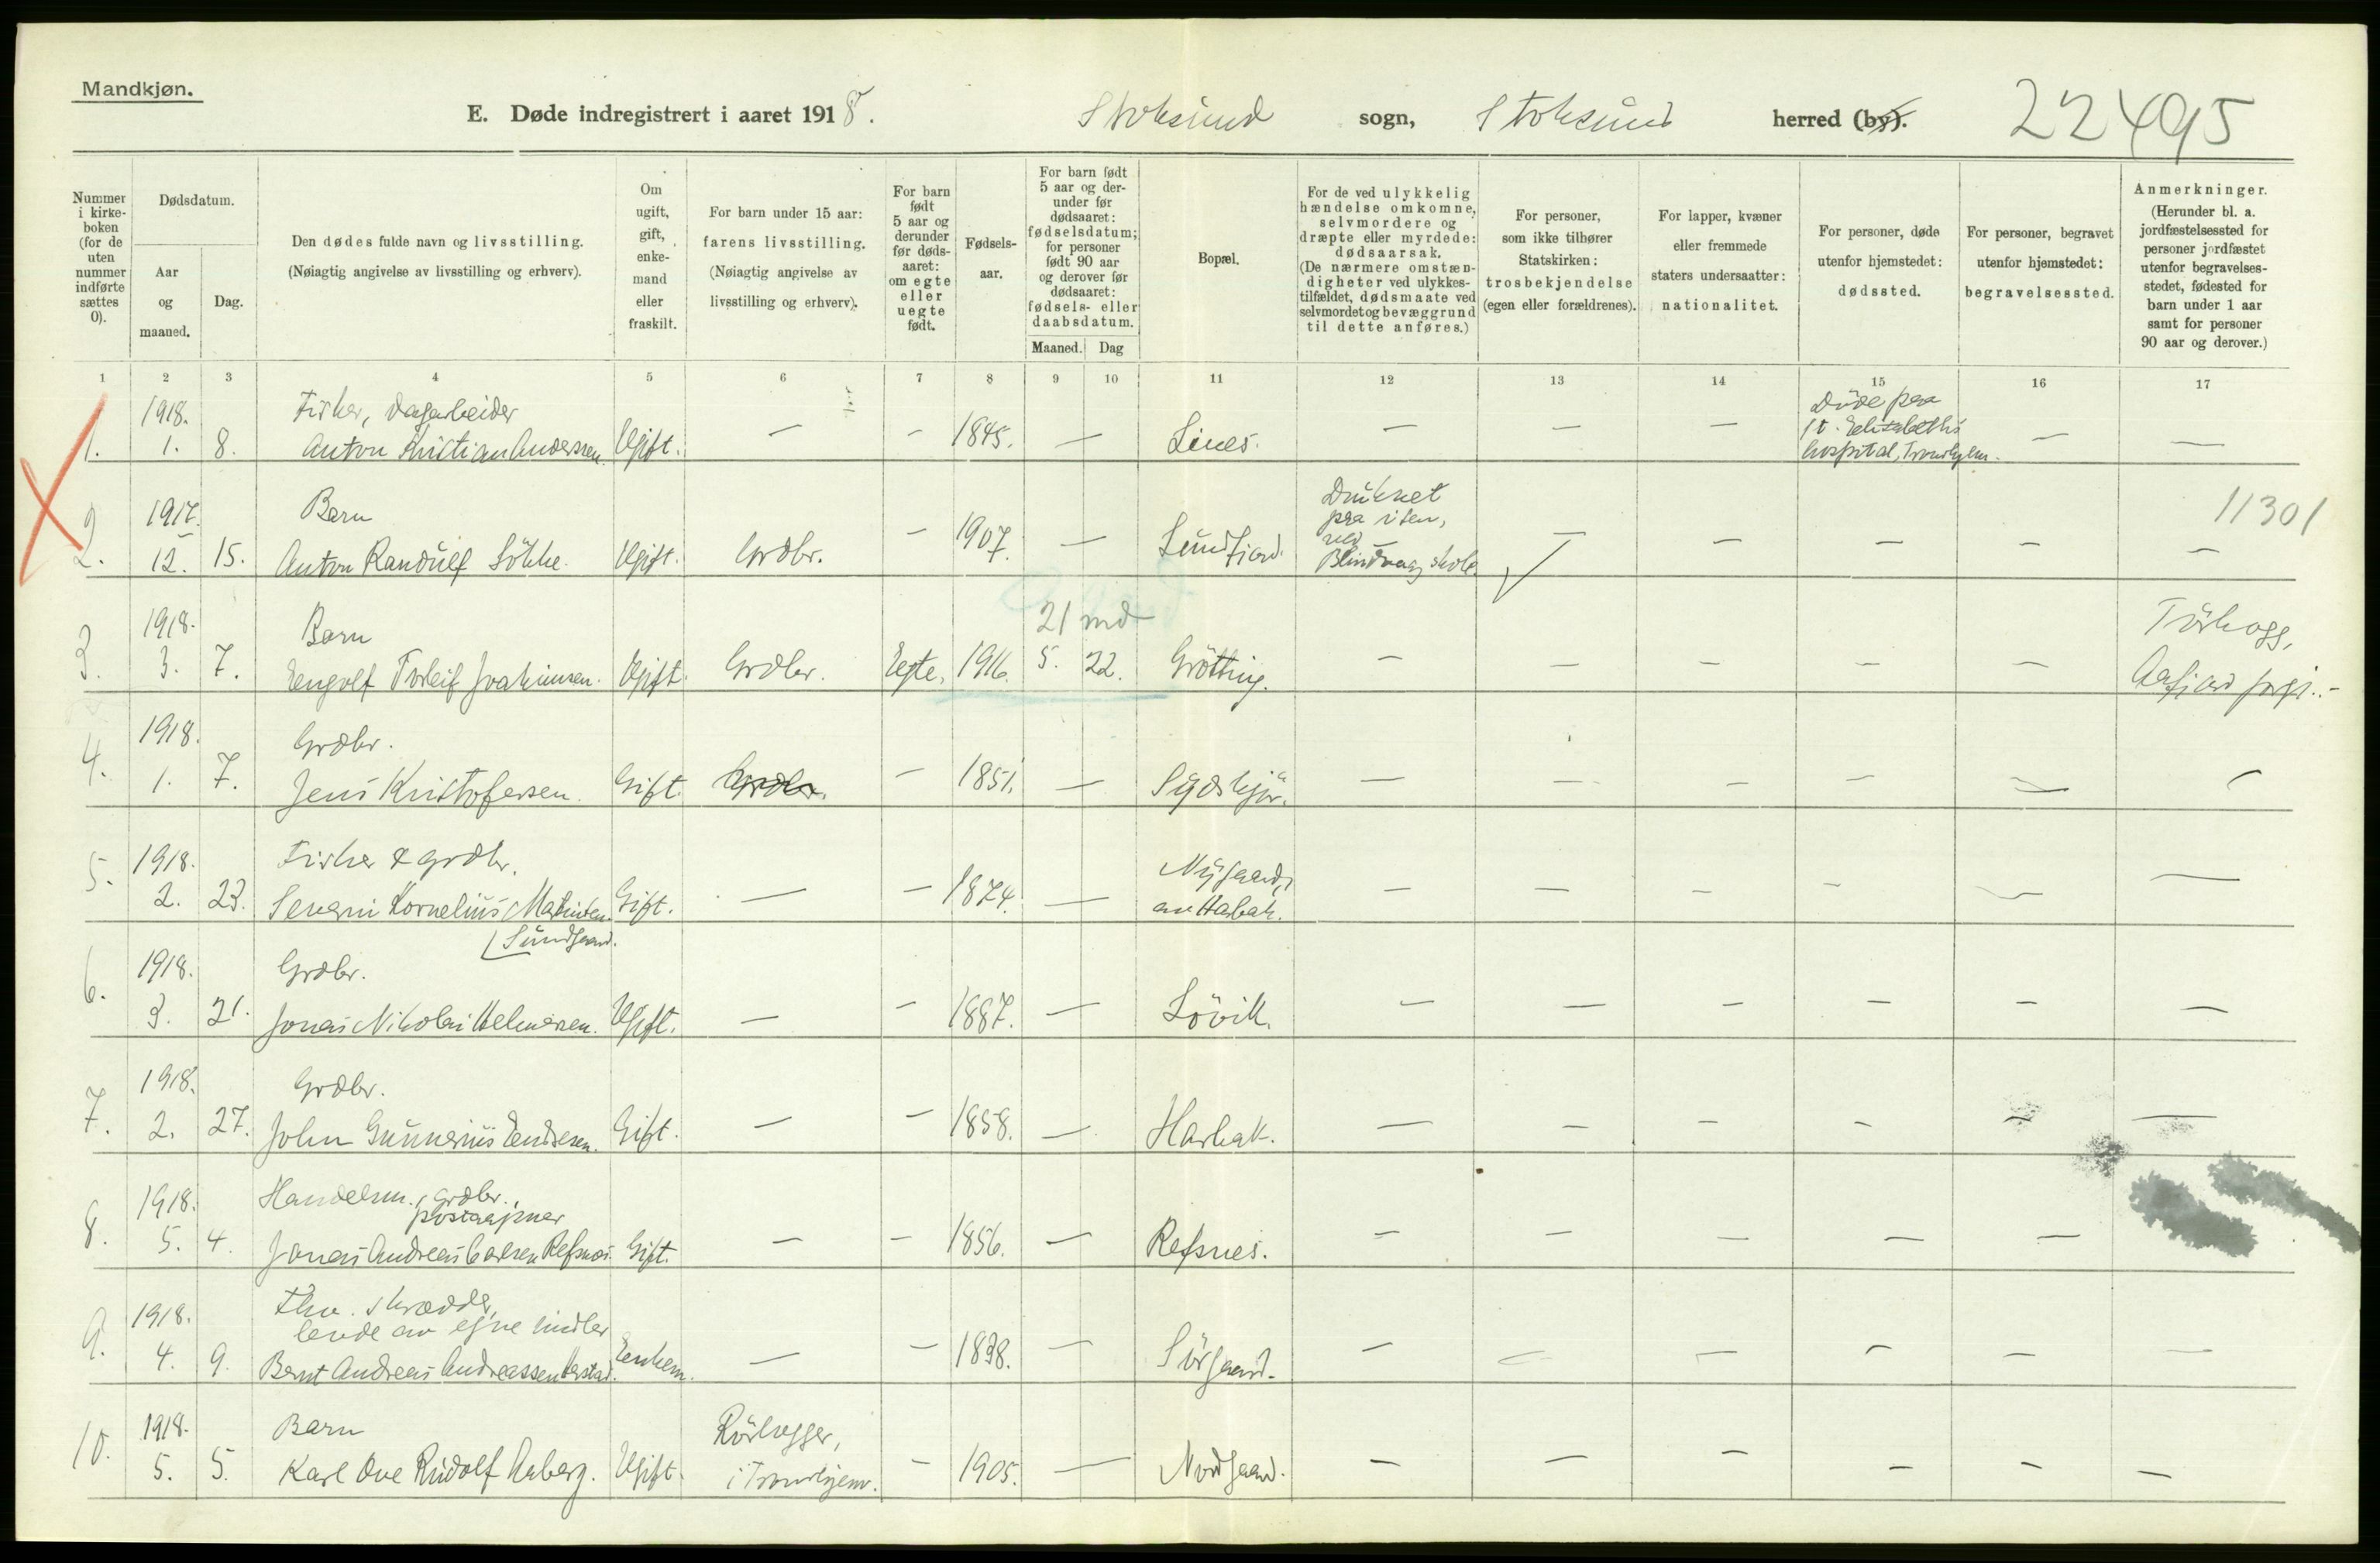 Mandkjøn.
E. Døde indregistrert i aaret 1918. Stoksund sogn, Stoksund herred (by). 22495
Nummer i kirke-boken (for de uten nummer indførte sættes 0).
Dødsdatum.
Aar og maaned.
Dag.
Den dødes fulde navn og livsstilling.
(Nøiagtig angivelse av livsstilling og erhverv).
Om ugift, gift, enke-mand eller fraskilt.
For barn under 15 aar: farens livsstilling.
(Nøiagtig angivelse av livsstilling og erhverv).
For barn født 5 aar og derunder før døds-aaret: om egte eller uegte født.
Fødsels-aar.
For barn født 5 aar og der-under før dødsaaret: fødselsdatum; for personer født 90 aar og derover før dødsaaret: fødsels- eller daabsdatum.
Maaned. Dag
Bopæl.
For de ved ulykkelig hændelse omkomne, selvmordere og dræpte eller myrdede: dødsaarsak.
(De nærmere omstæn-digheter ved ulykkes-tilfældet, dødsmaate ved selvmordet og bevæggrund til dette anføres.)
For personer, som ikke tilhører Statskirken: trosbekjendelse (egen eller forældrenes).
For lapper, kvæner eller fremmede staters undersaatter: nationalitet.
For personer, døde utenfor hjemstedet: dødssted.
For personer, begravet utenfor hjemstedet: begravelsessted.
Anmerkninger.
(Herunder bl. a. jordfæstelsessted for personer jordfæstet utenfor begravelses-stedet, fødested for barn under 1 aar samt for personer 90 aar og derover.)
1 2 3 4 5 6 7 8 9 10 11 12 13 14 15 16 17
1918. Fisker, dagarbeider Døde paa
1. 1. 8. Anton Kristian Anderssen. Ugift. — - 1845. — Lines. — — — St. Elisabeths — —
hospital, Trondhjem.
1917. Barn Druknet 11301
paa isen,
2. 12. 15. Anton Randulf Sökke. Ugift. Grdbr. - 1907. — Sundfjord. ved — — — — —
Blindvaag skole.
1918. Barn 21 md Törhogg,
3. 3. 7. Engolf Torleif Joakimsen. Ugift. Grdbr. Egte. 1916. 5. 22. Grötting. — — — — — Aafjord prgj.-
1918. Grdbr.
4. 1. 7. Jens Kristofersen. Gift. Grdbr. — 1851. — Sydskjör. — — — — — —
1918. Fisker & grdbr. Nygaard,
5. 2. 23. Severin Kornelius Martinsen. Gift. — — 1874. — av Harbak. — — — — — —
(Sundgaard.
1918. Grdbr.
6. 3. 21. Jonas Nikolai Helmersen. Ugift. — - 1887. — Lövik. — — — — — —
1918. Grdbr.
7. 2. 27. John Gunnerius Endresen. Gift. — — 1858. — Harbak. — — — — — —
1918. Handelsm., grdbr.,
postaapner
8. 5. 4. Jonas Andreas Carlsen Refsnes. Gift. — — 1856. — Refsnes. — — — — —
1918. Fhv. skrædder,
levde av egne midler
9. 4. 9. Bernt Andreas Andreassen Herstad. Enkem. — — 1838. — Sörgaard. — — — — — —
1918. Barn Rörlegger,
10. 5. 5. Karl Ove Rudolf Aaberg. Ugift. i Trondhjem. - 1905. — Nordgaard. — — — — — —